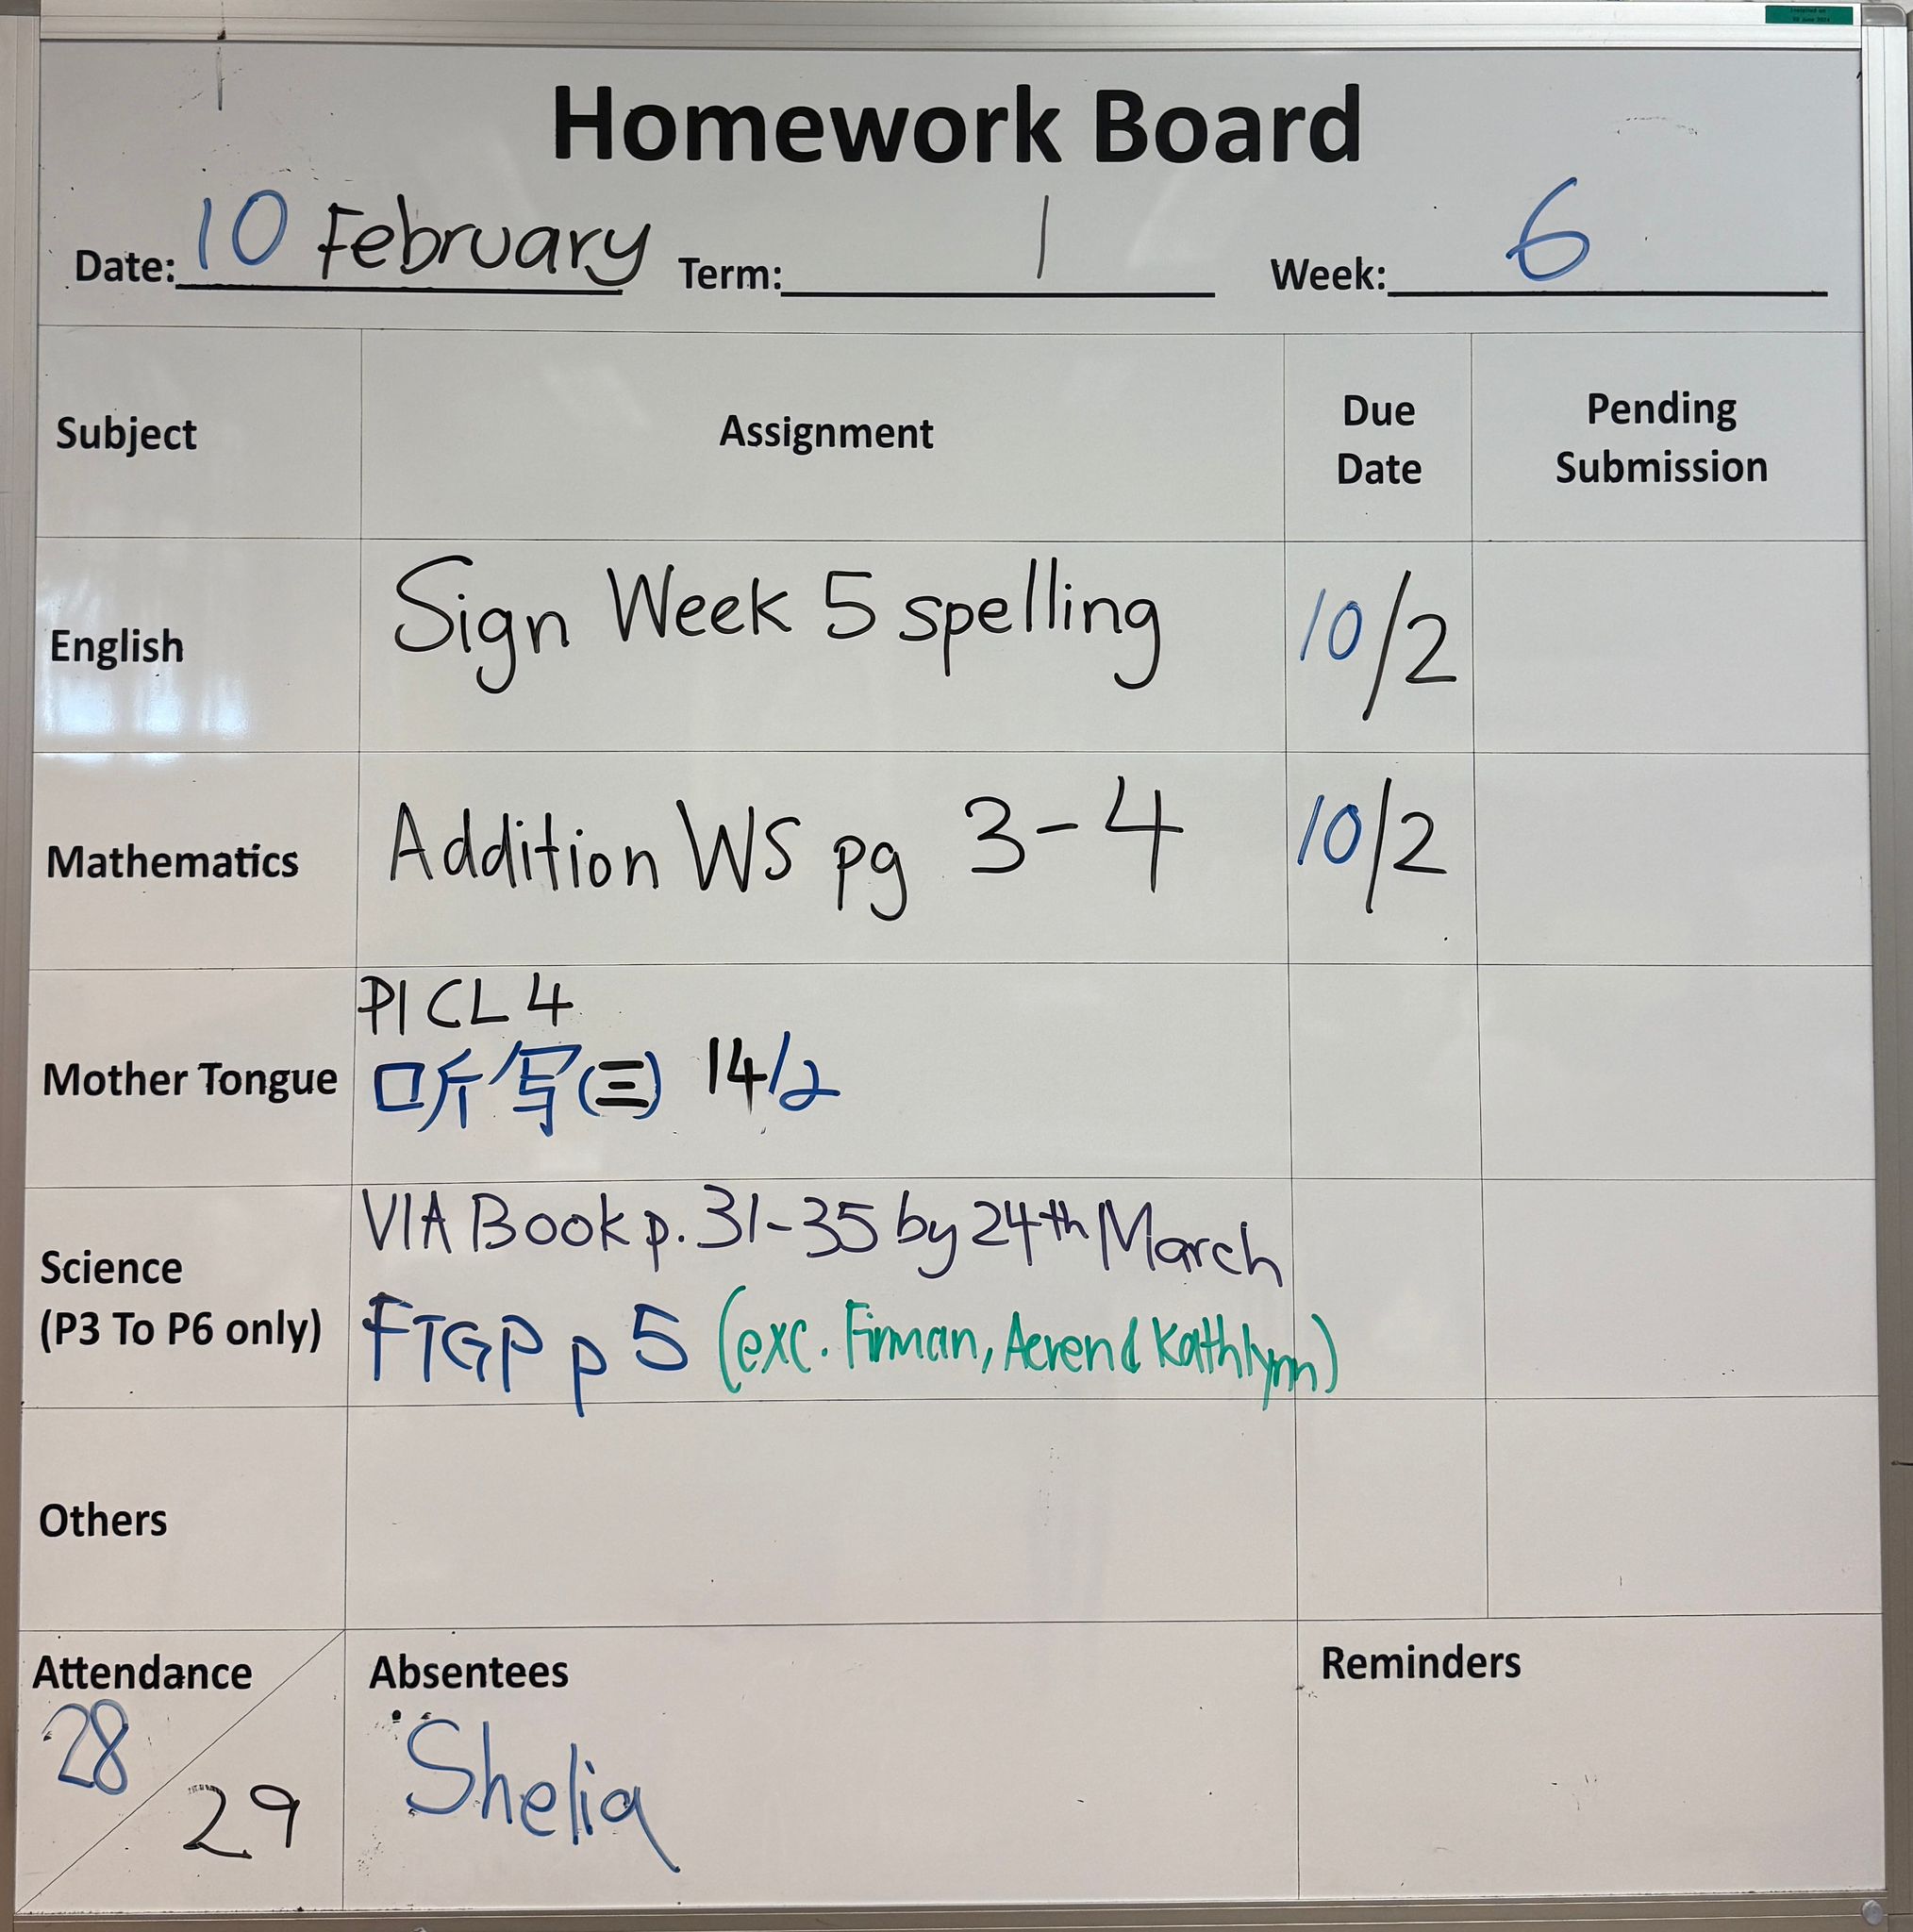 Homework Board
Date: 10 February Term: 1 Week: 6
Subject Assignment Due Date Pending Submission
English Sign Week 5 spelling 10/2
Mathematics Addition WS pg 3-4 10/2
Mother Tongue
PICL 4
听写(三) 14/2
Science
(P3 To P6 only)
VIA Book p. 31-35 by 24th March
FTGP p 5 (exc. Firman, Aeren & Kathlynn)
Others
Attendance
28
29
Absentees
Shelia
Reminders